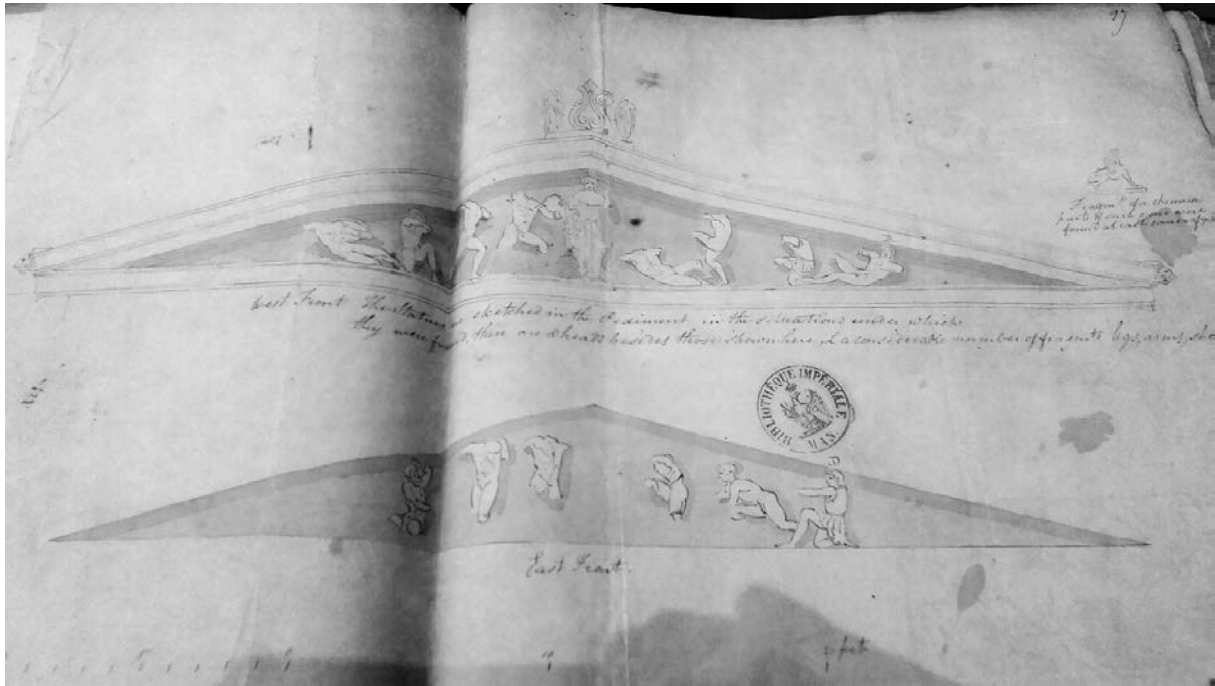 27
Fragmt. of a chimera
parts of such a one were
found at each corner of
West Front The Statues are sketched in the Pediment in the situations under which
they were found, there are heads besides those shown here, & a considerable number of fragments legs, arms, &c
BIBLIOTHÈQUE IMPÉRIALE
MAN.
East Front.
feet